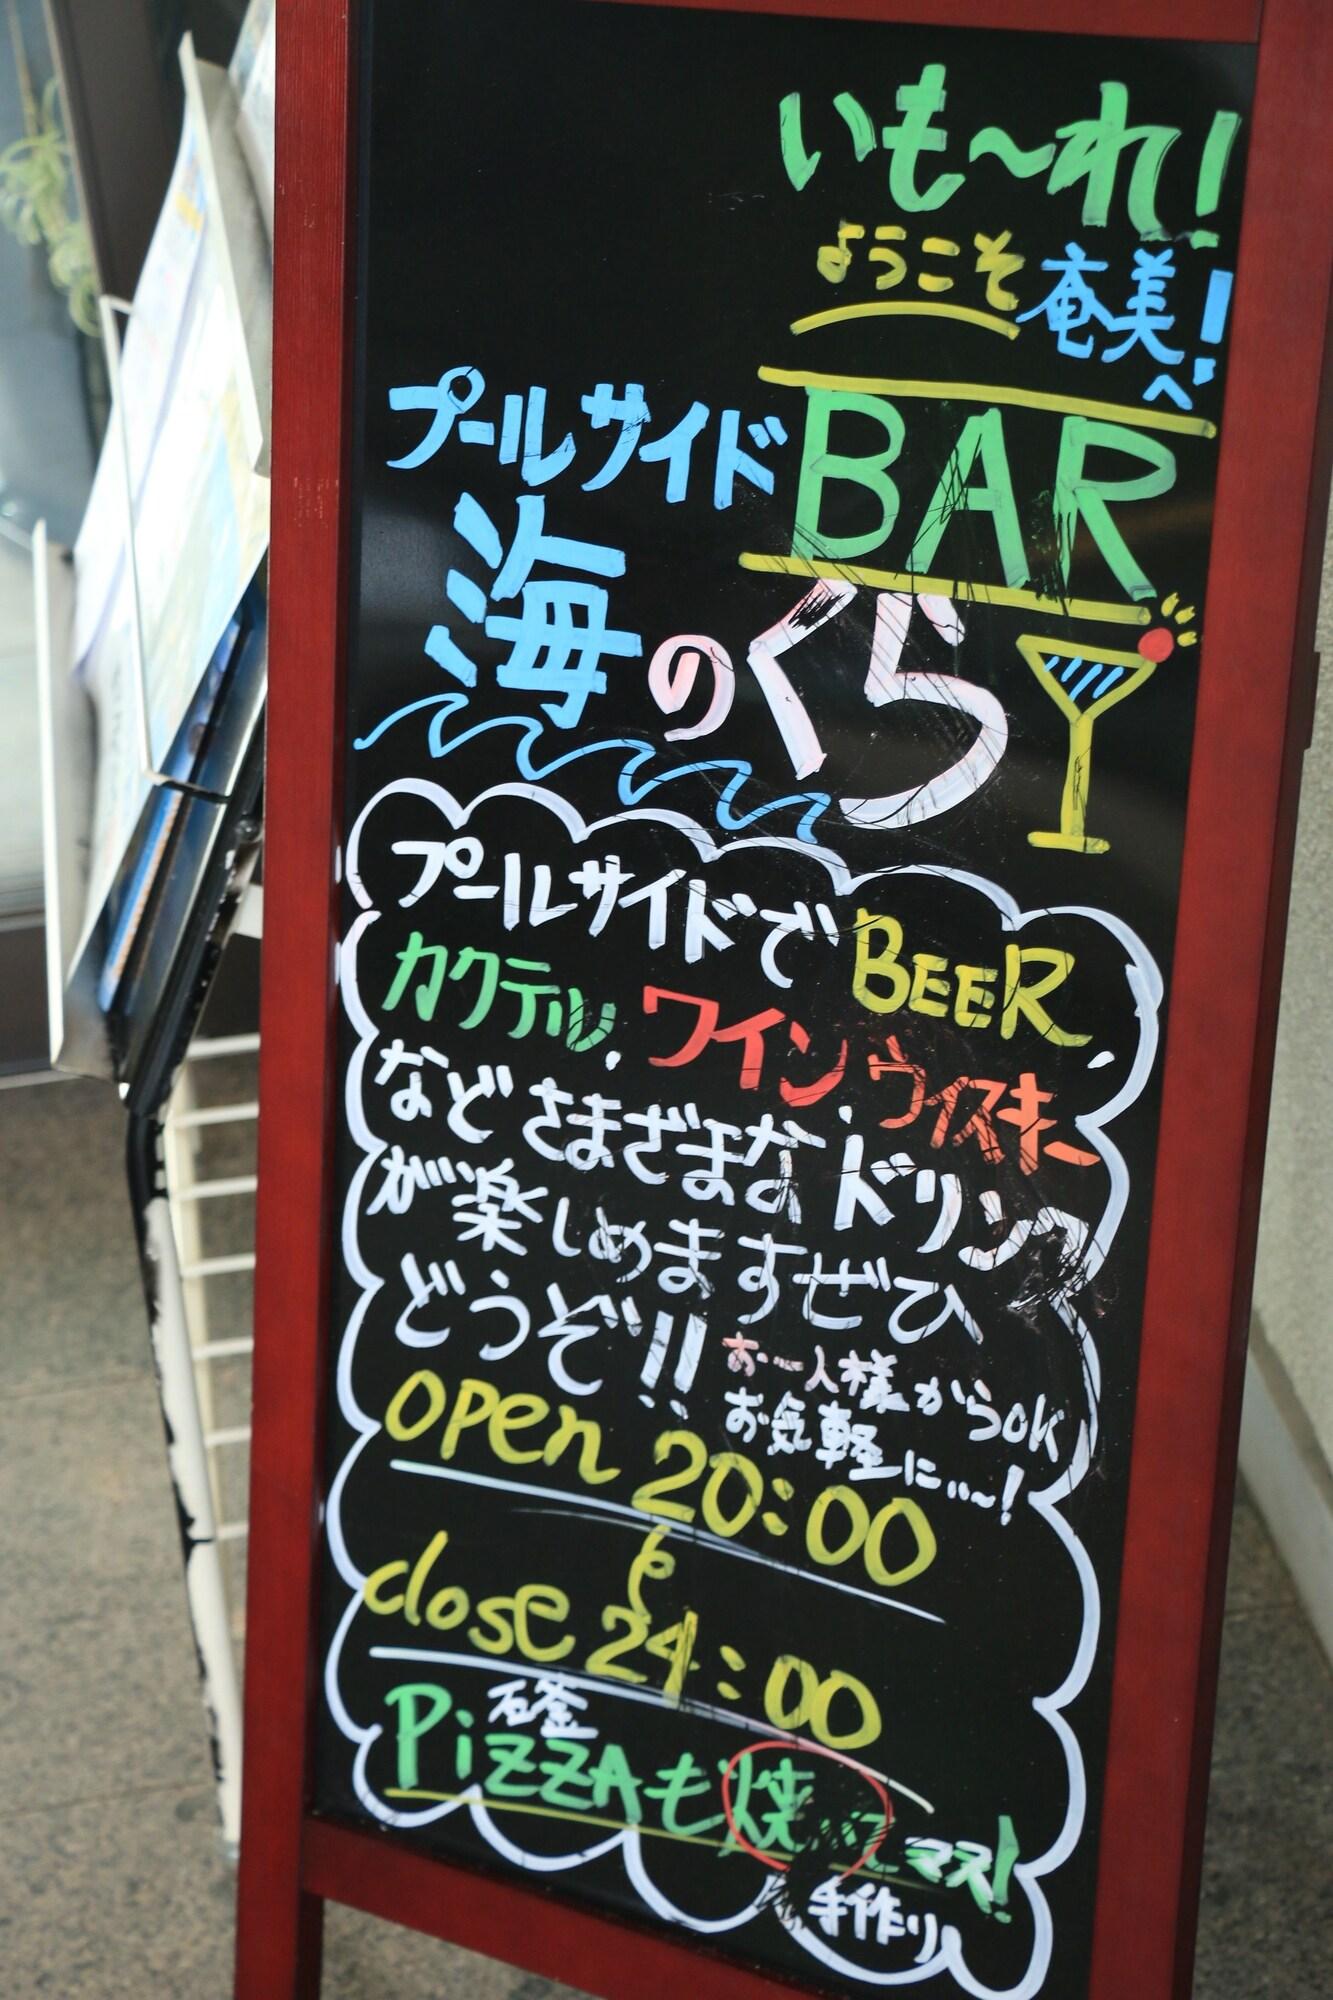 いも〜れ!
ようこそ奄美へ!
プールサイドBAR
海のくら
プールサイドでBEER
カクテル、ワイン、ウイスキー、
などさまざまなドリンク
が楽しめますぜひ
どうぞ!!
お一人様からOK
お気軽に…〜!
open 20:00
close 24:00
石釜
PiZZAも焼いてマス!
手作り